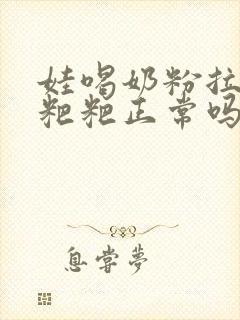 娃喝奶粉拉
粑粑正常吗
息尝梦